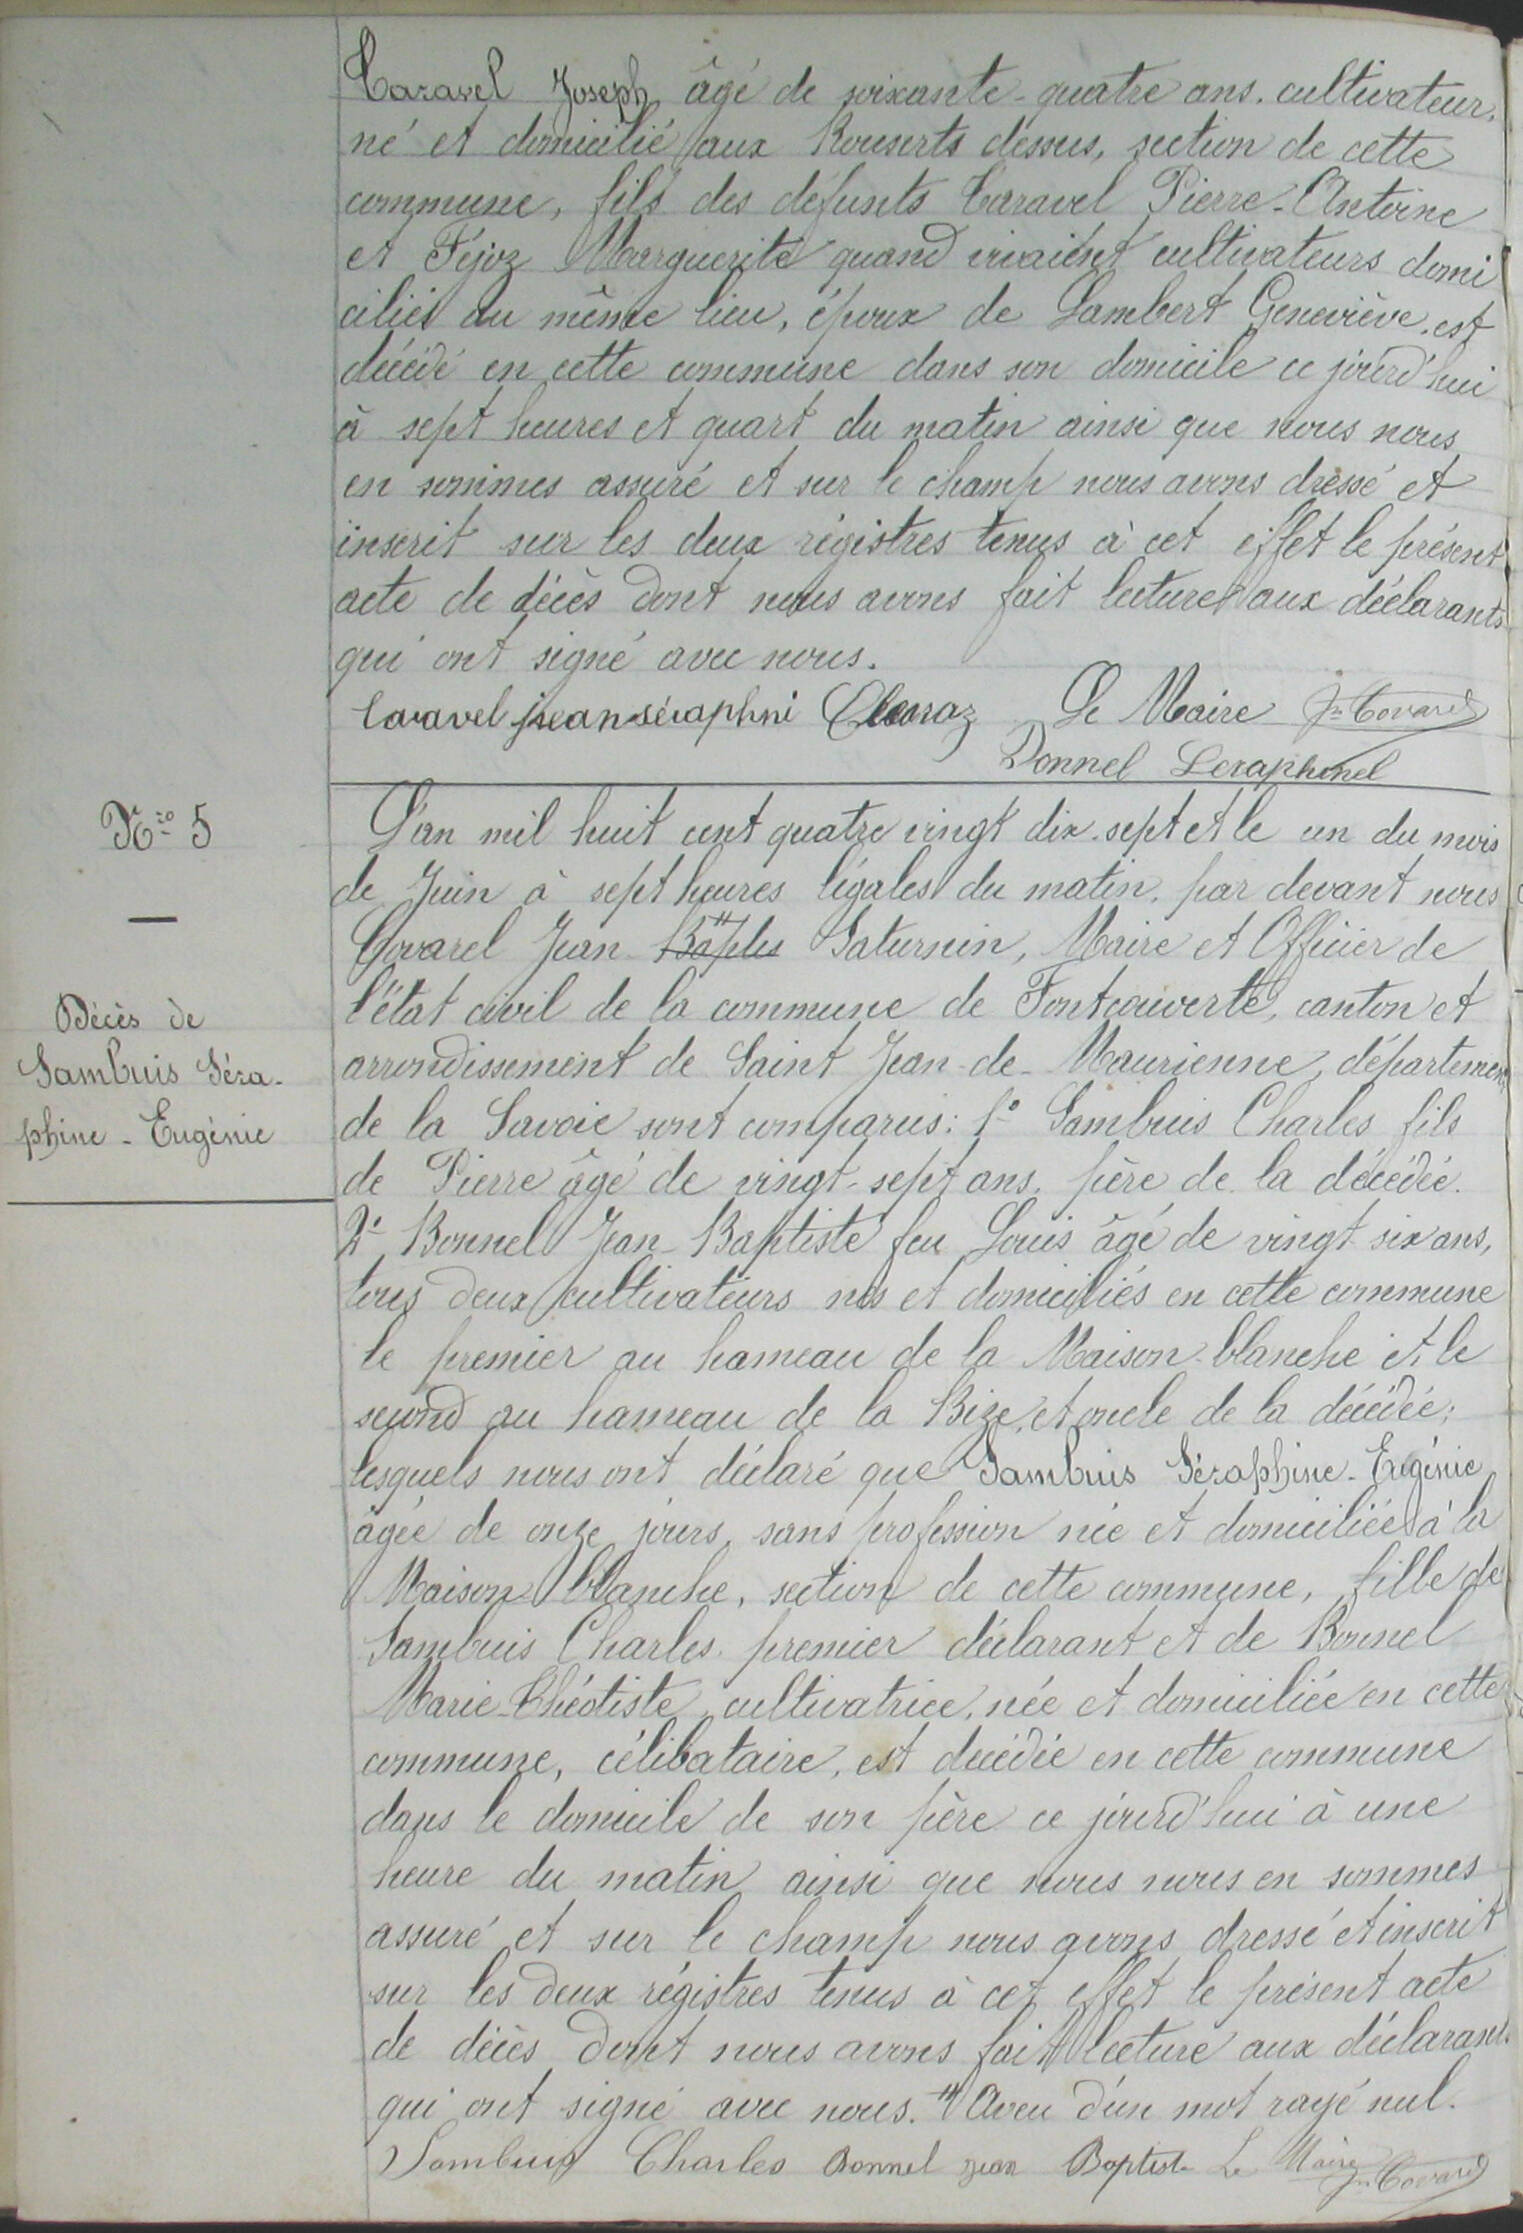 Caravel Joseph âgé de soixante-quatre ans. cultivateur,
né et domicilié aux Rouserts dessus, section de cette
commune, fils des défunts Caravel Pierre-Antoine
et Féjoz Marguerite quand vivaient cultivateurs domi
ciliés au même lieu, époux de Lambert Geneviève. est
décédé en cette commune dans son domicile ce jourd'hui
à sept heures et quart du matin ainsi que nous nous
en sommes assuré et sur le champ nous avons dressé et
inscrit sur les deux régistres tenus à cet effet le présent
acte de décès dont nous avons fait lecture aux déclarants
qui ont signé avec nous.
Caravel jean séraphni Le Maire Jn Covarel
Bonnel
N.ro 5
Décès de
Sambuis Séra-
phine - Eugénie
L'an mil huit cent quatre vingt dix-sept et le un du mois
de Juin à sept heures légales du matin. par devant nous
Covarel Jean Saturnin, Maire et Officier de
l'état civil de la commune de Fontcouverte, canton et
arrondissement de Saint Jean-de-Maurienne, département
de la Savoie sont comparus: 1° Sambuis Charles fils
de Pierre âgé de vingt-sept ans. père de la décédée.
2° Bonnel Jean-Baptiste feu Louis âgé de vingt six ans,
tous deux cultivateurs nés et domiciliés en cette commune
le premier au hameau de la Maison-blanche et le
second au hameau de la Bize, et oncle de la décédée;
lesquels nous ont déclaré que Sambuis Séraphine-Eugénie
âgée de onze jours, sans profession née et domiciliée à la
Maison blanche, section de cette commune, fille de
Sambuis Charles premier déclarant et de Bonnel
Marie-Théotiste, cultivatrice, née et domiciliée en cette
commune, célibataire, est décédée en cette commune
dans le domicile de son père ce jourd'hui à une
heure du matin ainsi que nous nous en sommes
assuré et sur le champ nous avons dressé et inscrit
sur les deux régistres tenus à cet effet le présent acte
de décès dont nous avons fait lecture aux déclarants
qui ont signé avec nous. # Aveu d'un mot rayé nul.
Sambuis Charles Bonnel jean Baptiste Le Maire Jn Covarel